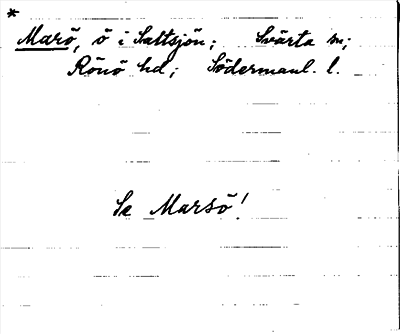 *
Marö, ö i Saltsjön; Svärta sn;
Rönö hd; Södermanl. l.
Se Marsö!